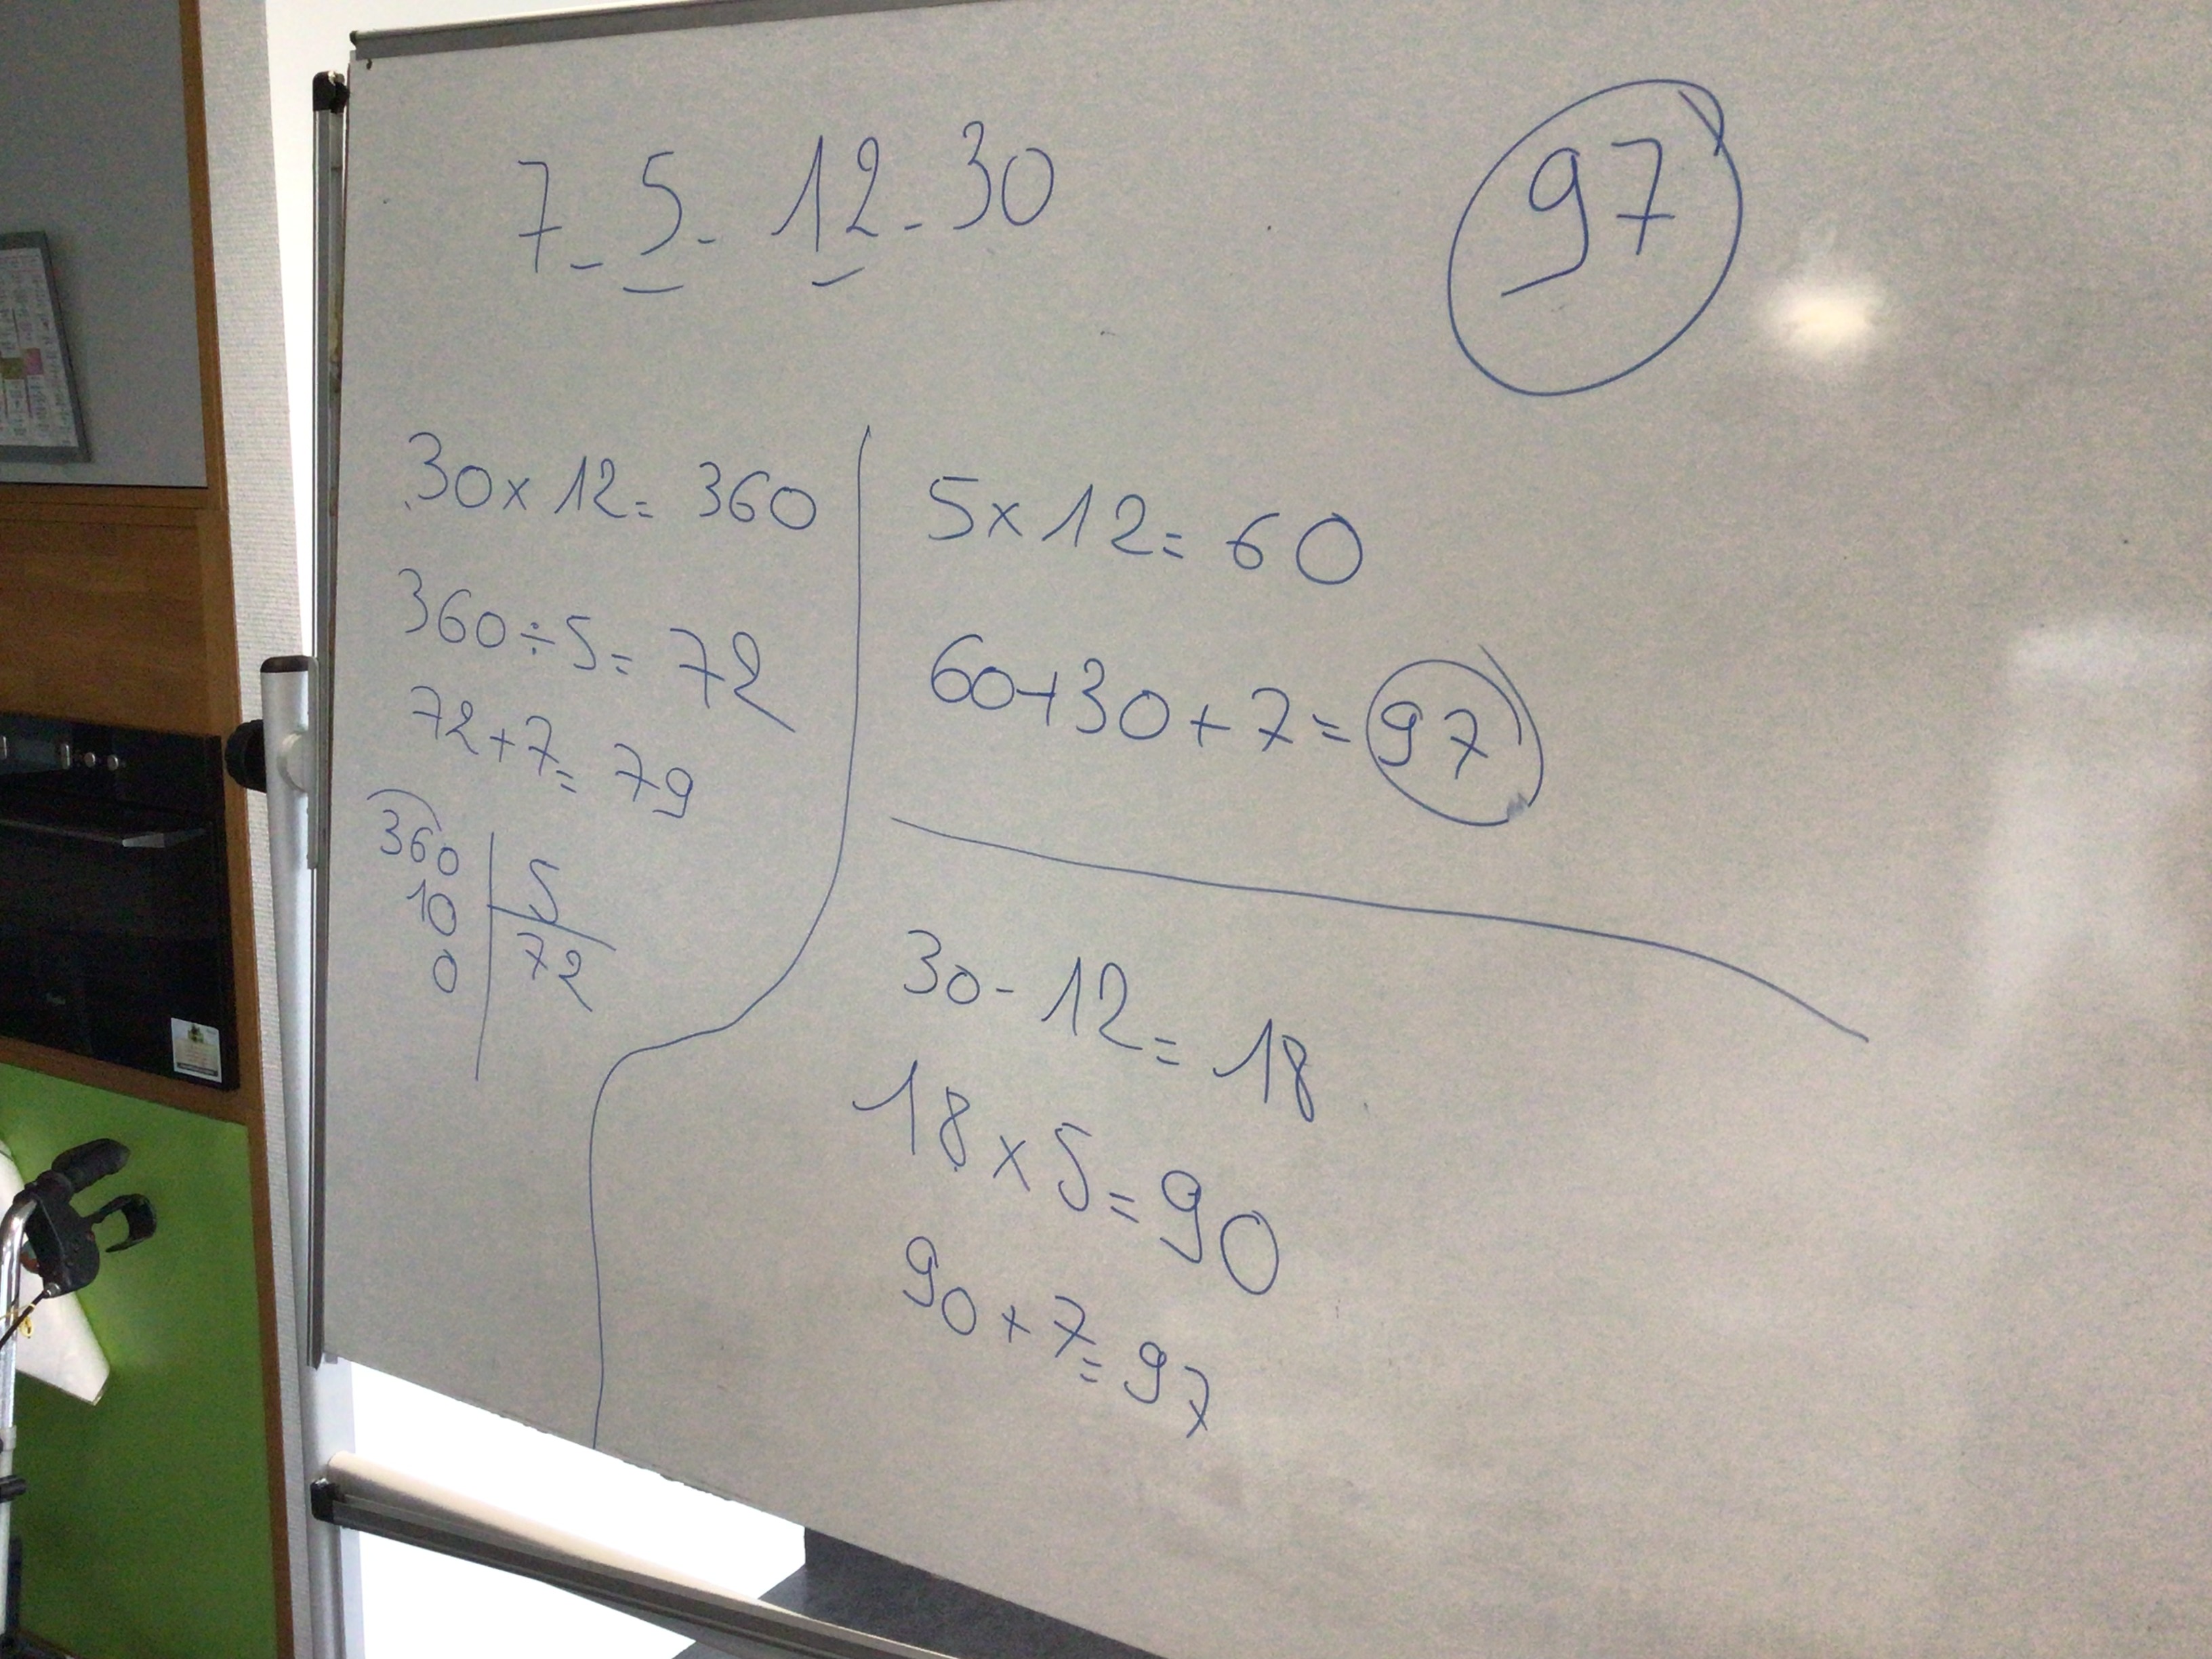 7 - 5 - 12 - 30
97
30 x 12 = 360
360 ÷ 5 = 72
72 + 7 = 79
360 | 5
10 | 72
0
5 x 12 = 60
60 + 30 + 7 = 97
30 - 12 = 18
18 x 5 = 90
90 + 7 = 97